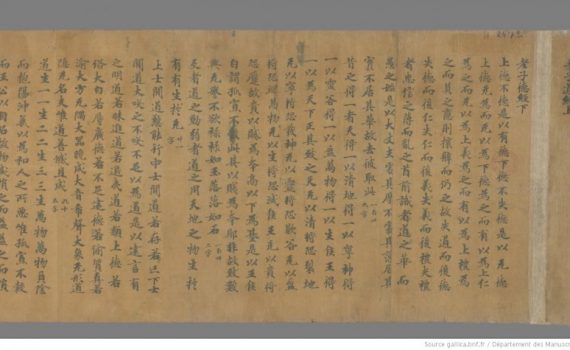 老子德經下
上德不德是以有德下德不失德是以无德
上德无為而无以為下德為之而有以為上仁
為之而无以為上義為之而有以為上禮為
之而莫之應則攘臂而仍之故失道而後德
失德而後仁失仁而後義失義而後禮夫禮
者忠信之薄而亂之首前識者道之華而
愚之始是以大丈夫處其厚不處其薄居其
實不居其華故去彼取此
昔之得一者天得一以清地得一以寧神得
一以靈谷得一以盈萬物得一以生侯王得
一以為天下正其致之天无以清将恐裂地
无以寧将恐發神无以靈将恐歇谷无以盈
将恐竭萬物无以生将恐滅侯王无以貴将
恐蹷故貴以賤為本高以下為基是以王侯
自謂孤寡不轂此其以賤為本耶非故致數
輿无譽不欲琭琭如玉落落如石
反者道之動弱者道之用天地之物生於
有有生於无
上士聞道懃能行中士聞道若存若亡下士
聞道大咲之不咲不足以為道是以建言有
之明道若昧進道若退夷道若類上德若
俗大白若辱廣德若不足建德若偷質真若
渝大方无隅大器晚成大音希聲大象无形道
隱无名夫唯道善貸且成
道生一一生二二生三三生萬物萬物負陰
而抱陽沖氣以為和人之所惡唯孤寡不轂
而王公以自名故物或損之而益益之而損
Source gallica.bnf.fr / Département des Manusc